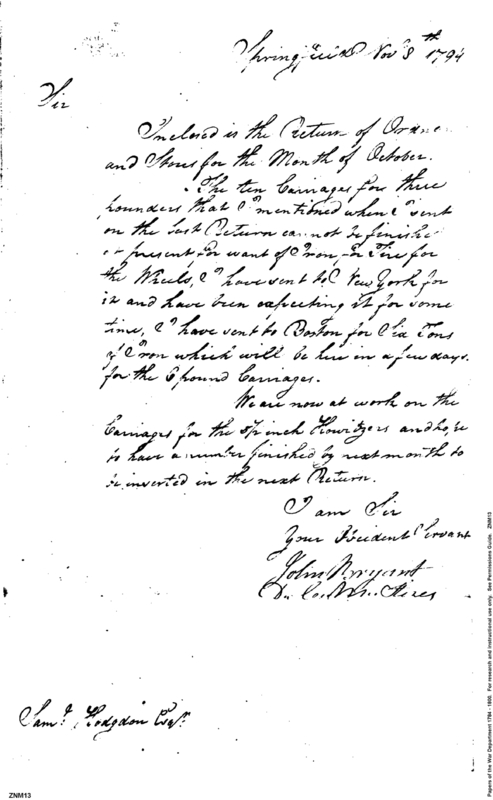 Springfield Novr 8th 1794
Sir
Inclosed is the Return of Ordnan
and Stores for the Month of October.
The ten Carriages for three
pounders that I mentioned when I sent
on the last Return cannot be finished
at present for want of Iron, for Tire for
the Wheels, I have sent to New York for
it and have been expecting it for some
time, I have sent to Boston for Six Tons
of Iron which will be here in a few days
for the 6 pound Carriages.
We are now at work on the
Carriages for the inch Howitzers and hope
to have a number finished by next month to
be inserted in the next Return.
I am Sir
Your Obedient Servant
John Bryant
Saml. Hodgdon Esqr.
ZNM13
Papers of the War Department 1784 - 1800. For research and instructional use only. See Permissions Guide. ZNM13